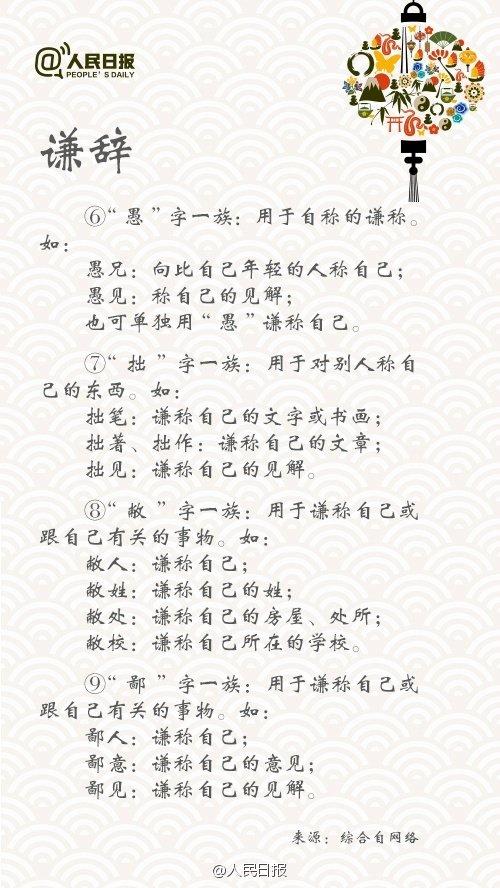 @人民日报
PEOPLE'S DAILY
谦辞
⑥“愚”字一族：用于自称的谦称。
如：
愚兄：向比自己年轻的人称自己；
愚见：称自己的见解；
也可单独用“愚”谦称自己。
⑦“拙”字一族：用于对别人称自
己的东西。如：
拙笔：谦称自己的文字或书画；
拙著、拙作：谦称自己的文章；
拙见：谦称自己的见解。
⑧“敝”字一族：用于谦称自己或
跟自己有关的事物。如：
敝人：谦称自己；
敝姓：谦称自己的姓；
敝处：谦称自己的房屋、处所；
敝校：谦称自己所在的学校。
⑨“鄙”字一族：用于谦称自己或
跟自己有关的事物。如：
鄙人：谦称自己；
鄙意：谦称自己的意见；
鄙见：谦称自己的见解。
来源：综合自网络
@人民日报